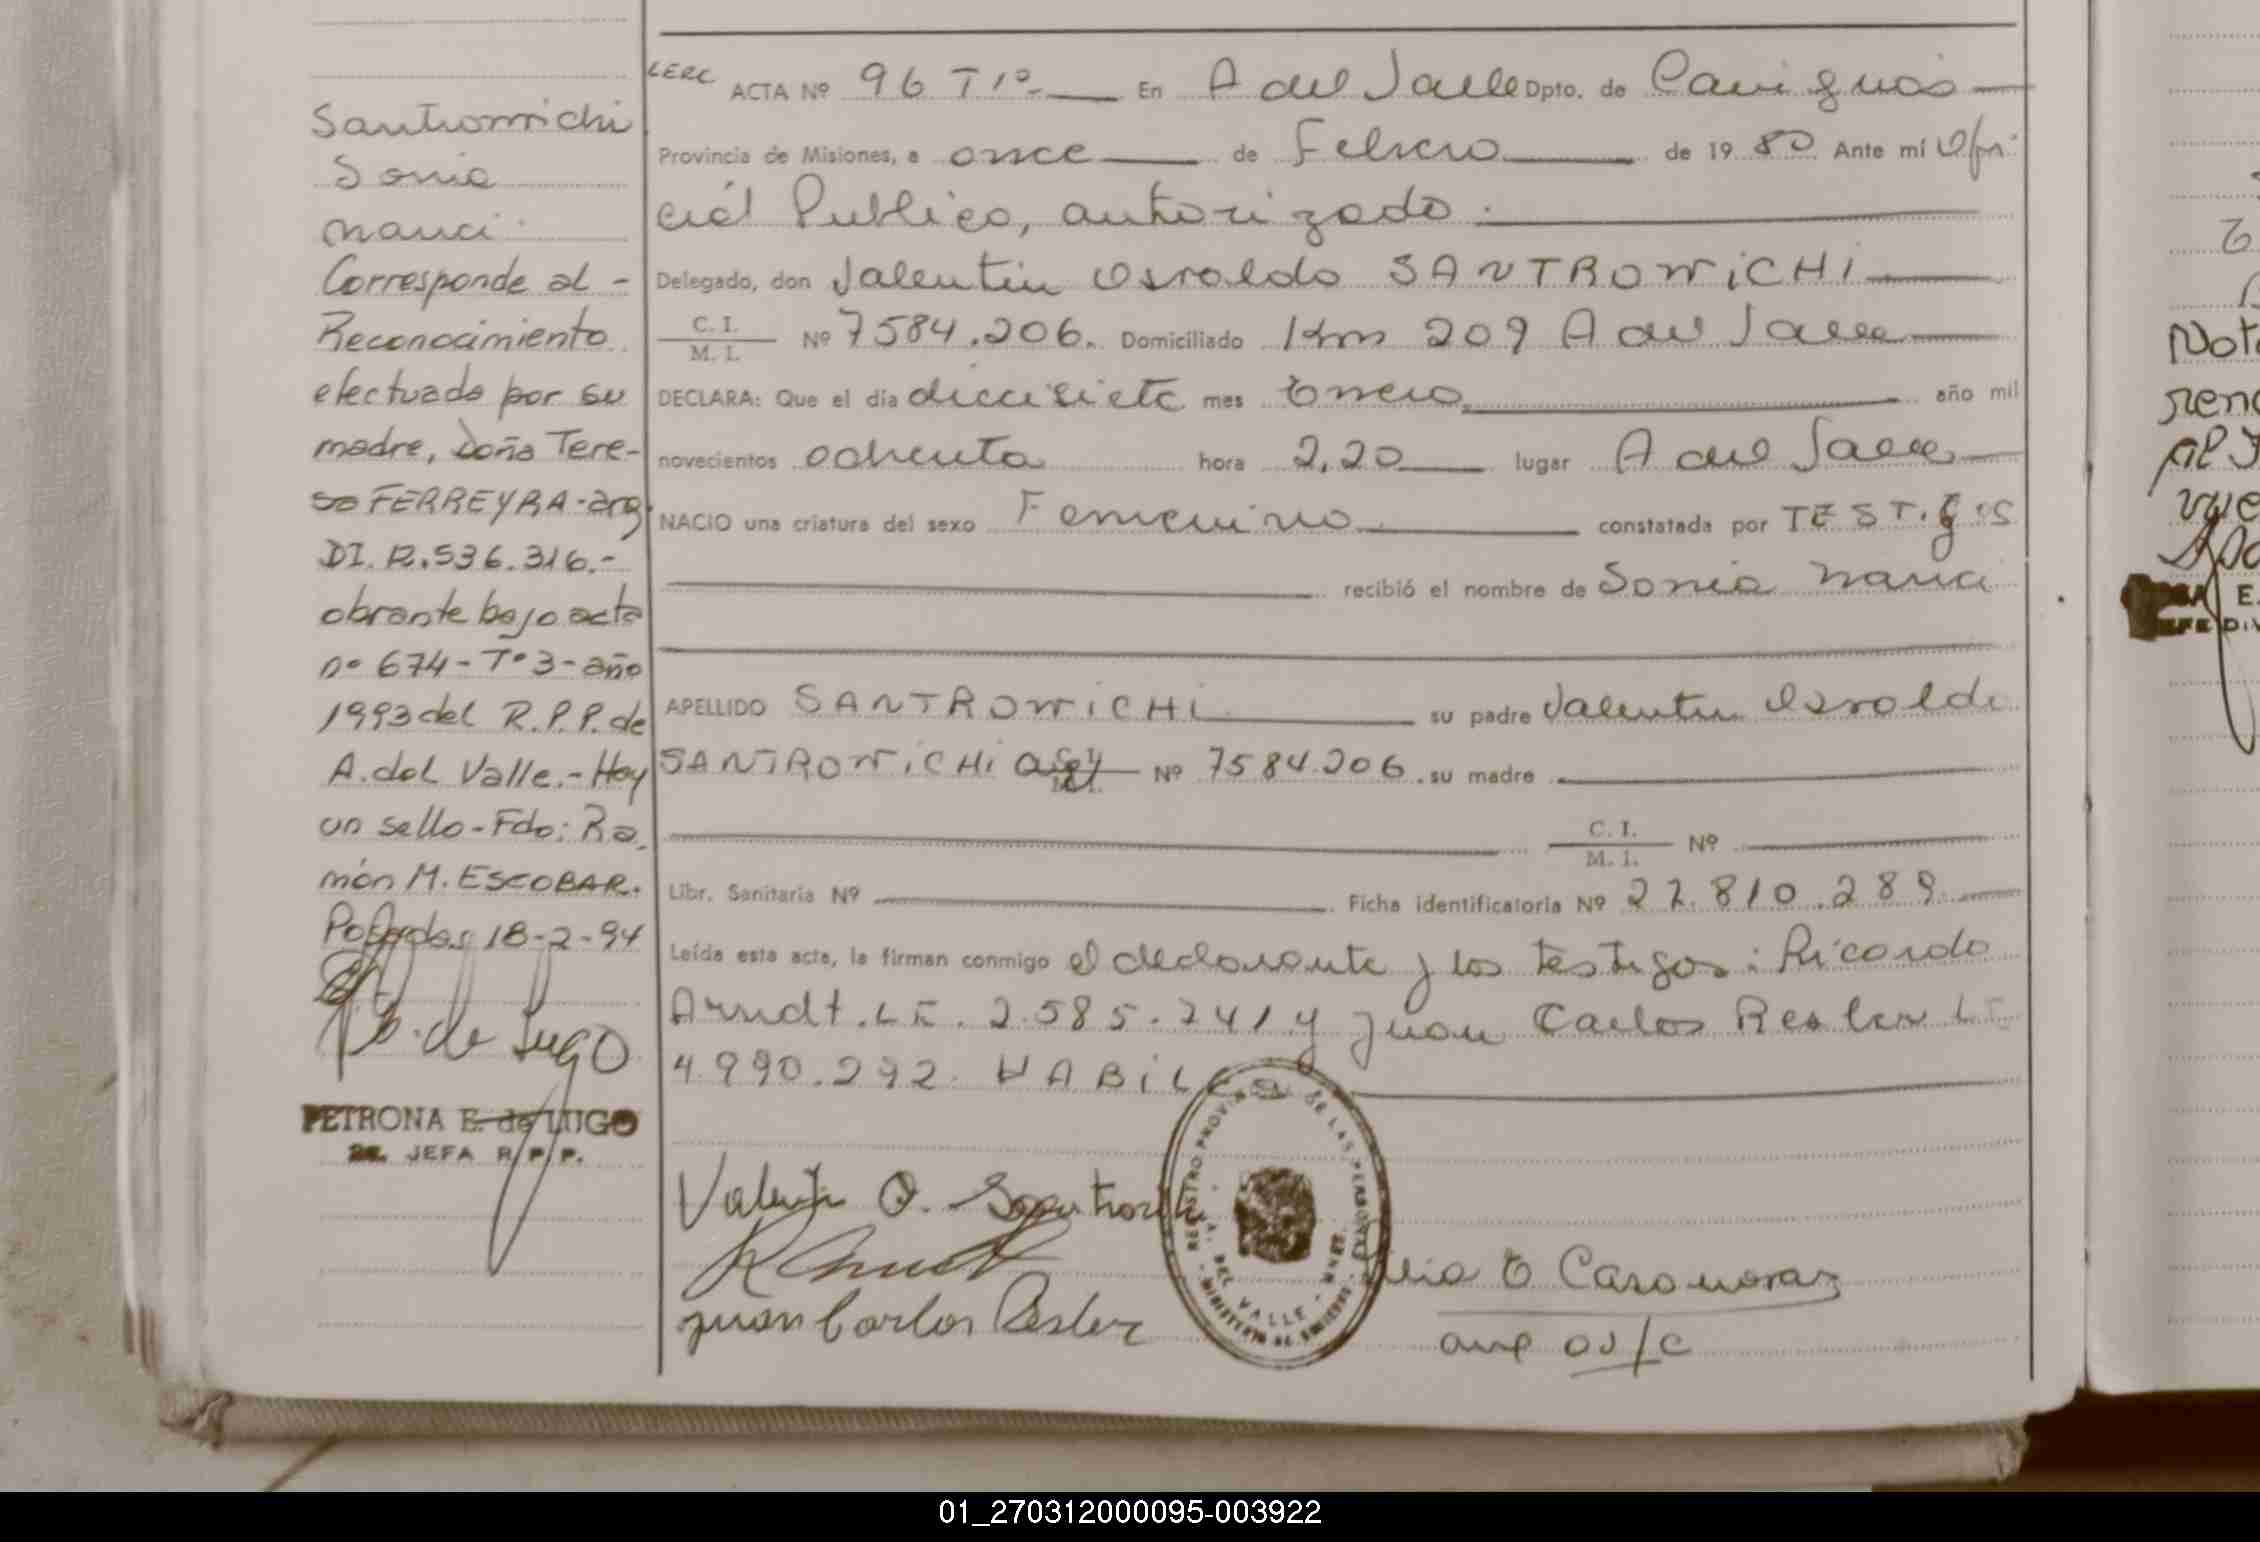 LERC
ACTA Nº 96 Tº 1º En A del Valle Dpto. de Cainguás
Provincia de Misiones, a once de Febrero de 1980 Ante mí Ofi-
cial Publico, autorizado.
Delegado, don Valentin Osvaldo SANTROWICHI
C. I.
M. I.
Nº 7584.206. Domiciliado Km 209 A del Valle
DECLARA: Que el día diecisiete mes Enero año mil
novecientos ochenta hora 2,20 lugar A del Valle
NACIO una criatura del sexo Femenino constatada por TESTIGOS
recibió el nombre de Sonia Nanci
APELLIDO SANTROWICHI su padre Valentin Osvaldo
SANTROWICHI Nº 7584.206. su madre
C. I.
M. I.
Nº
Libr. Sanitaria Nº Ficha identificatoria Nº 27.810.289
Leída esta acta, la firman conmigo el declarante y los testigos: Ricardo
Arndt. LE. 2.585.241 y Juan Carlos Resler LE
4.990.292. HABIL
Santrowichi
Sonia
Nanci
Corresponde al -
Reconocimiento
efectuado por su
madre, Doña Tere-
sa FERREYRA-arg
DI. R.536.316.-
obrante bajo acta
nº 674-Tº3-año
1993 del R.P.P. de
A. del Valle.- Hay
un sello-Fdo: Ra
món M. ESCOBAR.
Posadas 18-2-94
de Lugo
PETRONA E. de LUGO
JEFA R.P.P.
Valentin O. Santrowichi
R Arndt
Juan Carlos Resler
REGISTRO PROVINCIAL DE LAS PERSONAS
A. DEL VALLE - MNES.
MINISTERIO DE GOBIERNO
E Casanovaz
01_270312000095-003922